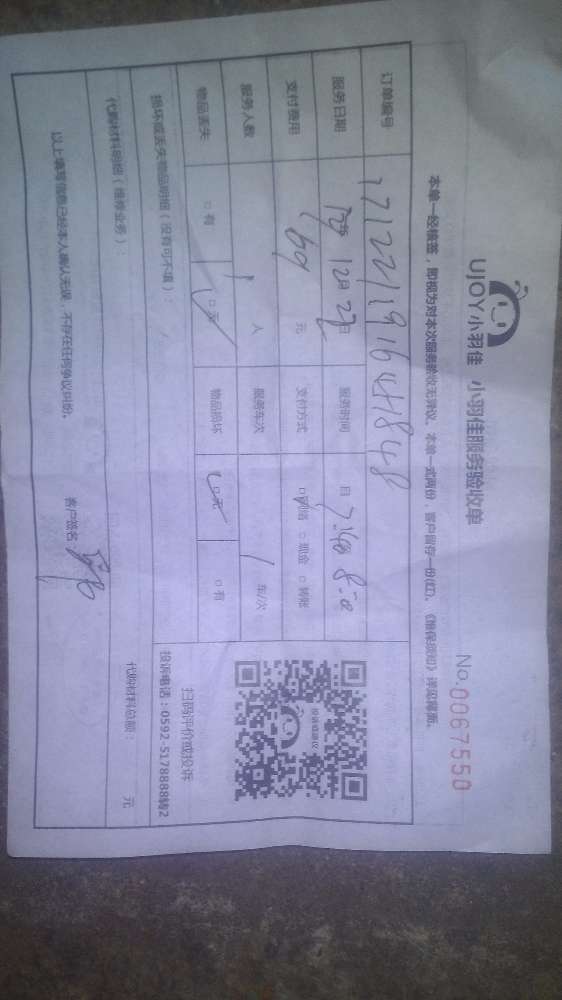 UJOY小羽佳 小羽佳服务验收单
No.0067550
本单一经接签，即视为对本次服务验收无异议。本单一式两份，客户留存一份(红)。《维保须知》详见背面。
订单编号 171221191644848
服务日期 12月27日 服务时间 日 7:40 8:0
支付费用 169 元 支付方式 □网络 □现金 □转账
服务人数 1 人 服务车次 1 车/次
物品丢失 □有 □无 物品损坏 □无 □有
投诉或建议
扫码评价或投诉
投诉电话：0592-5178888转2
损坏或丢失物品明细（没有可不填）：
代购材料明细（维修业务）：
代购材料总额： 元
以上填写信息已经本人确认无误，不存在任何争议纠纷。
客户签名